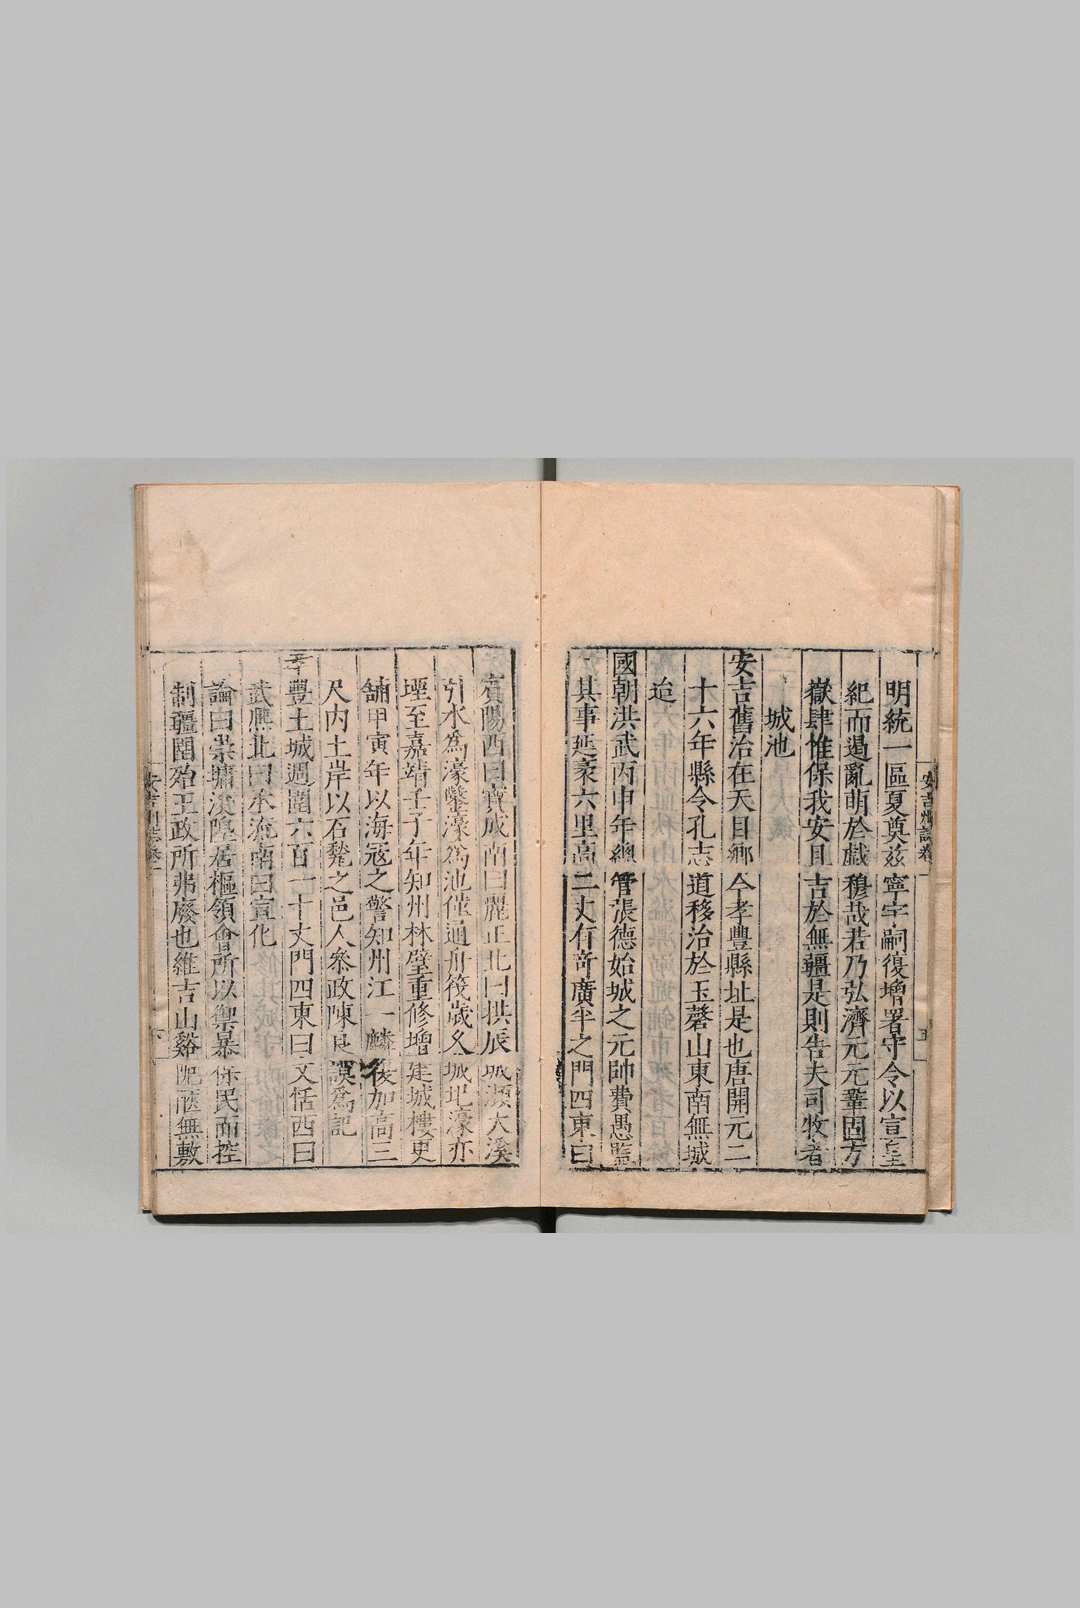 明統一區夏奠兹寧宇嗣復增署守令以宣皇
紀而遏亂萌於戲穆哉若乃弘濟元元鞏固方
嶽肆惟保我安且吉於無疆是則告夫司牧者
城池
安吉舊治在天目鄉今孝豐縣址是也唐開元二
十六年縣令孔志道移治於玉磬山東南無城
迨
國朝洪武丙申年總管張德始城之元帥費愚監
其事延袤六里高二丈有奇廣半之門四東曰
賓陽西曰寶成南曰麗正北曰拱辰城濒大溪
引水為濠鑿濠為池僅通舟筏歲久城圮濠亦
堙至嘉靖壬子年知州林壁重修增建城樓更
鋪甲寅年以海寇之警知州江一麟後加高三
尺內土岸以石甃之邑人參政陳良謨為記
孝豐土城週圍六百一十丈門四東曰文恬西曰
武熈北曰承流南曰宣化
論曰崇墉浚隍居樞領會所以禦暴保民而控
制疆圉殆王政所弗廢也維吉山谿阨隘無數
安吉州誌卷一 五
安吉州誌卷一